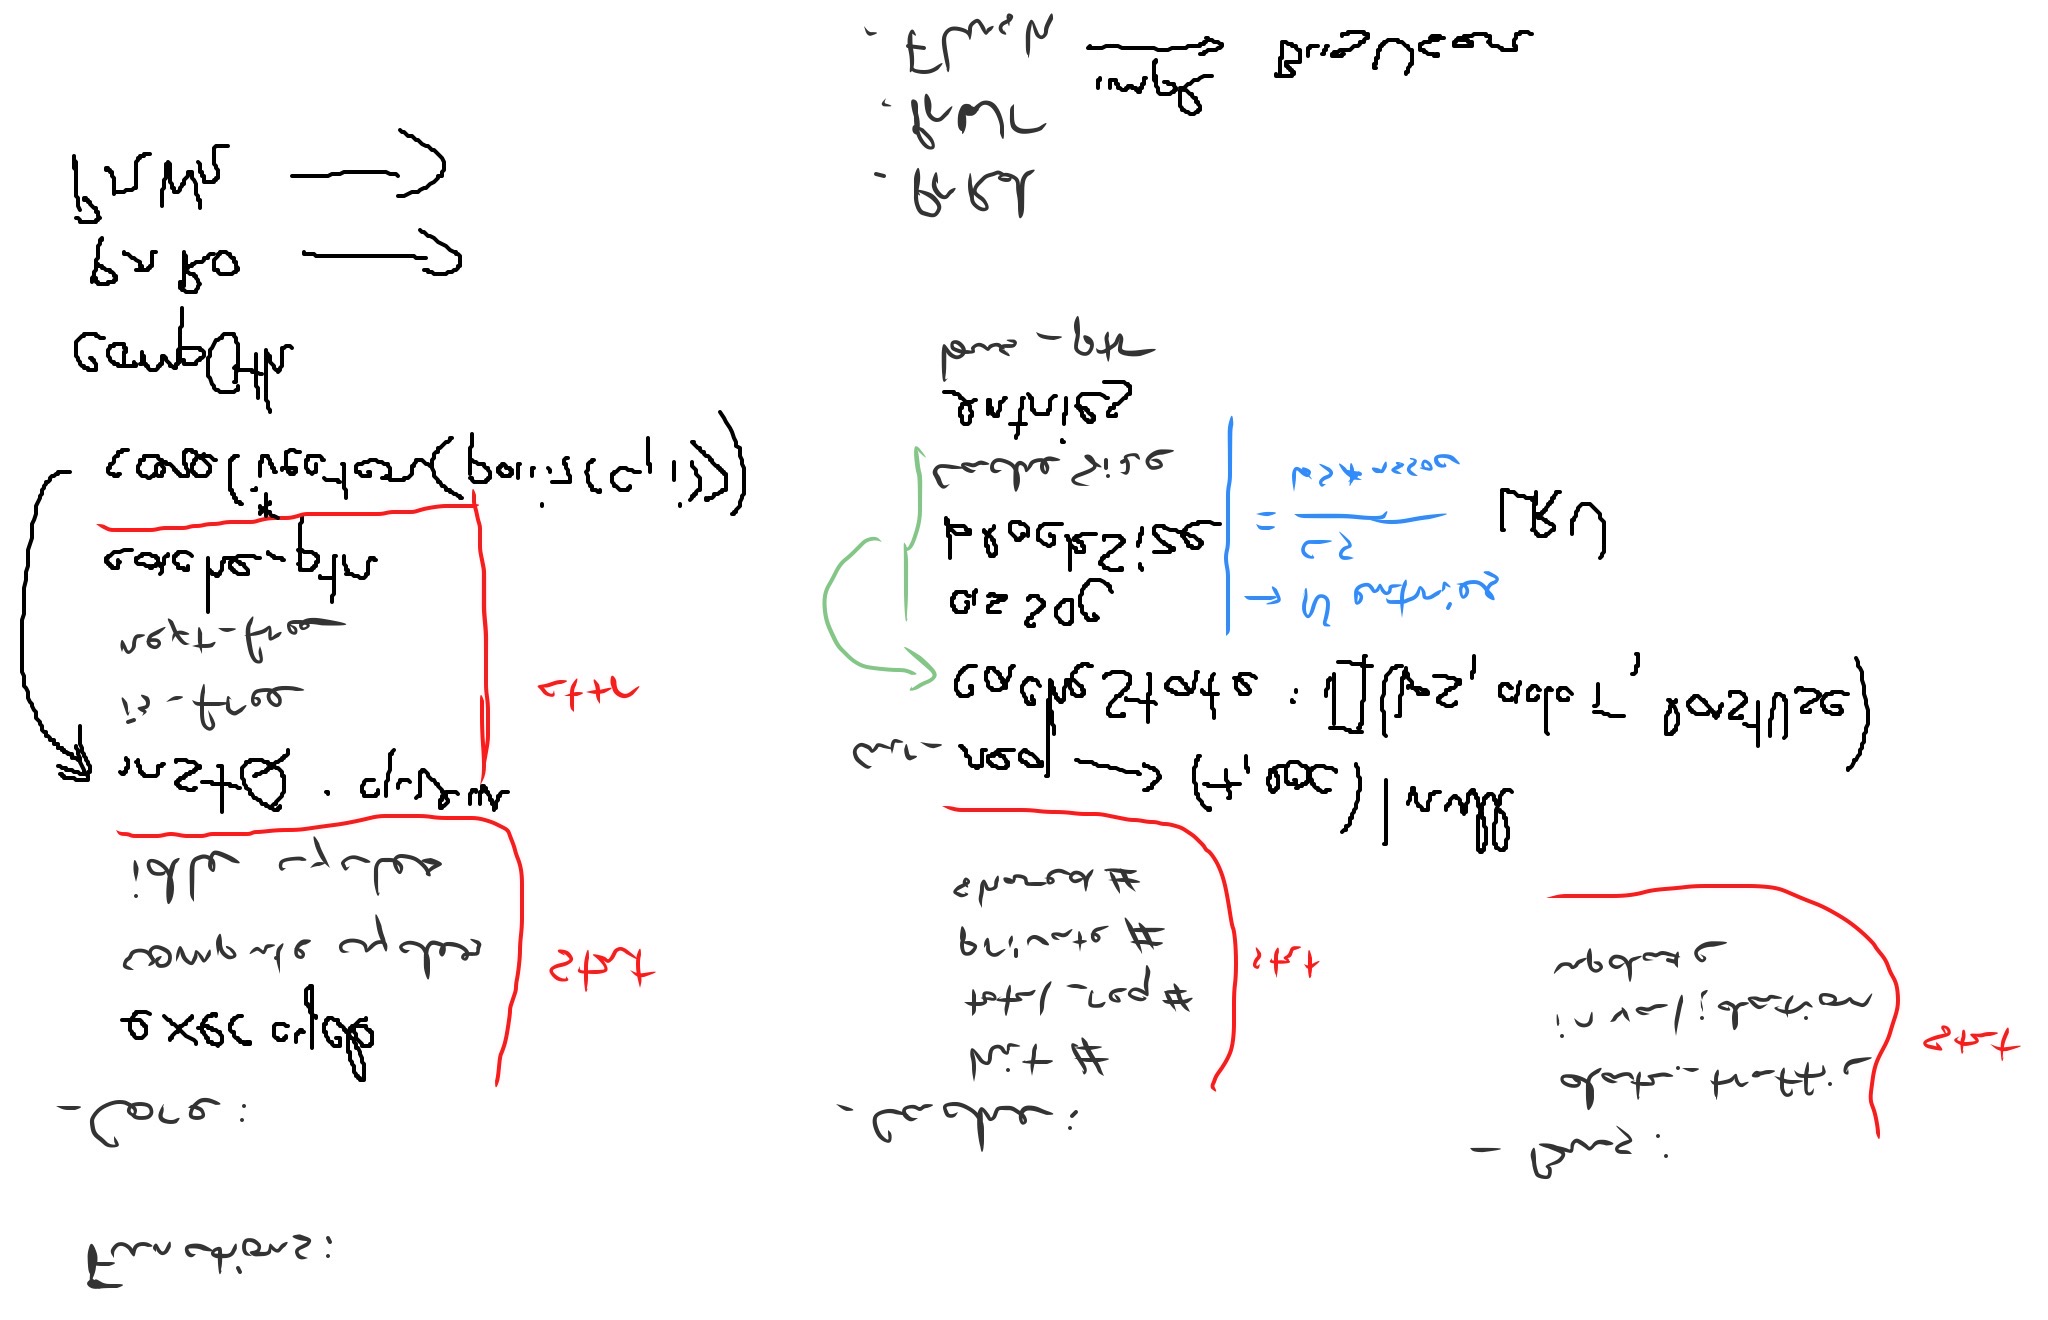 Functions:
- Core:
exec cycle
compute cycles
idle cycles
stat
instQ : queue
is_free
next_free
cache_ptr
attr
core(*vector(pair(c, i)))
compOth
PrRd →
PrWr →
- Cache:
hit #
total_req #
private #
shared #
stat
cur_req → (t, loc) | null
cacheState : [](bs, addr, lastUse)
assoc
blockSize
cache Size
entries
bus_ptr
→ N entries
= CS
bs * assoc
LRU
- PrRd
- PrWr
- Flush
impl →
BusUser
- Bus:
data_traffic
invalidation
update
stat